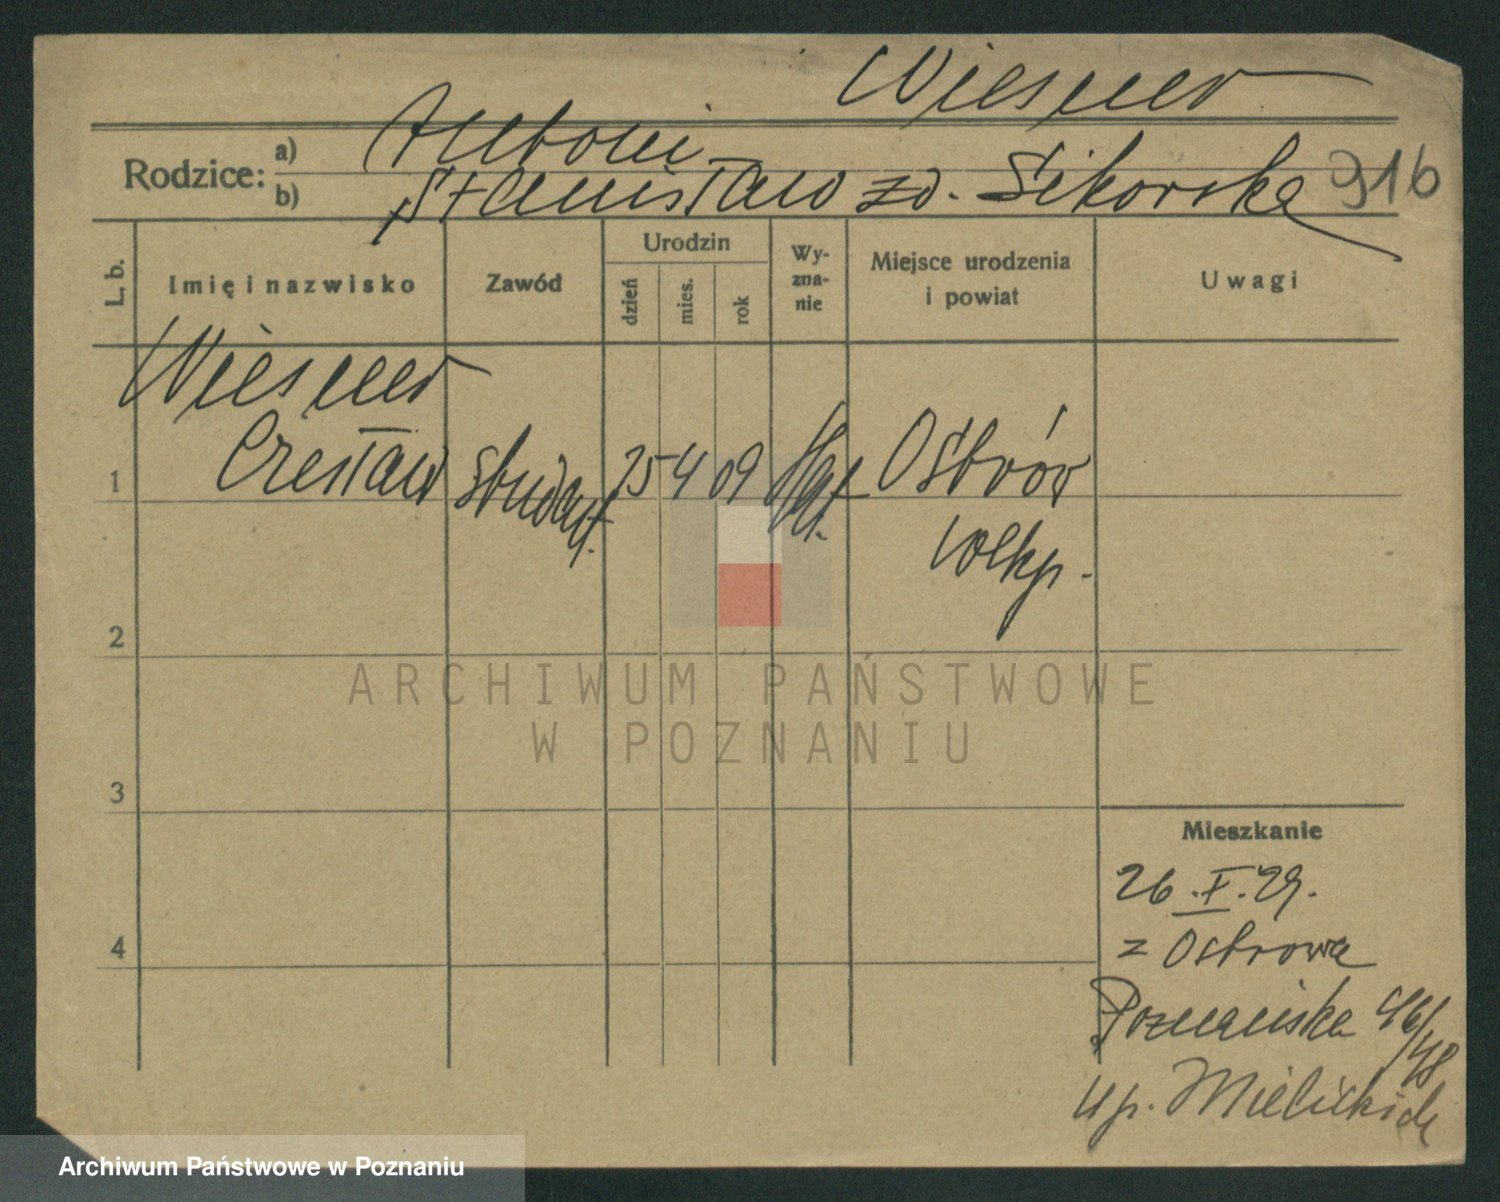 Wiesner
Rodzice: a) Antoni
b) Stanisława zd. Sikorska 916
L. b. Imię i nazwisko Zawód Urodzin dzień mies. rok Wyznanie Miejsce urodzenia i powiat Uwagi
Wiesner
1 Czesław student. 25 4 09 Ostrów
wlkp.
2
ARCHIWUM PAŃSTWOWE
W POZNANIU
3
Mieszkanie
26.X.29.
4 z Ostrowa
Poznańska 46/48
up.
Archiwum Państwowe w Poznaniu